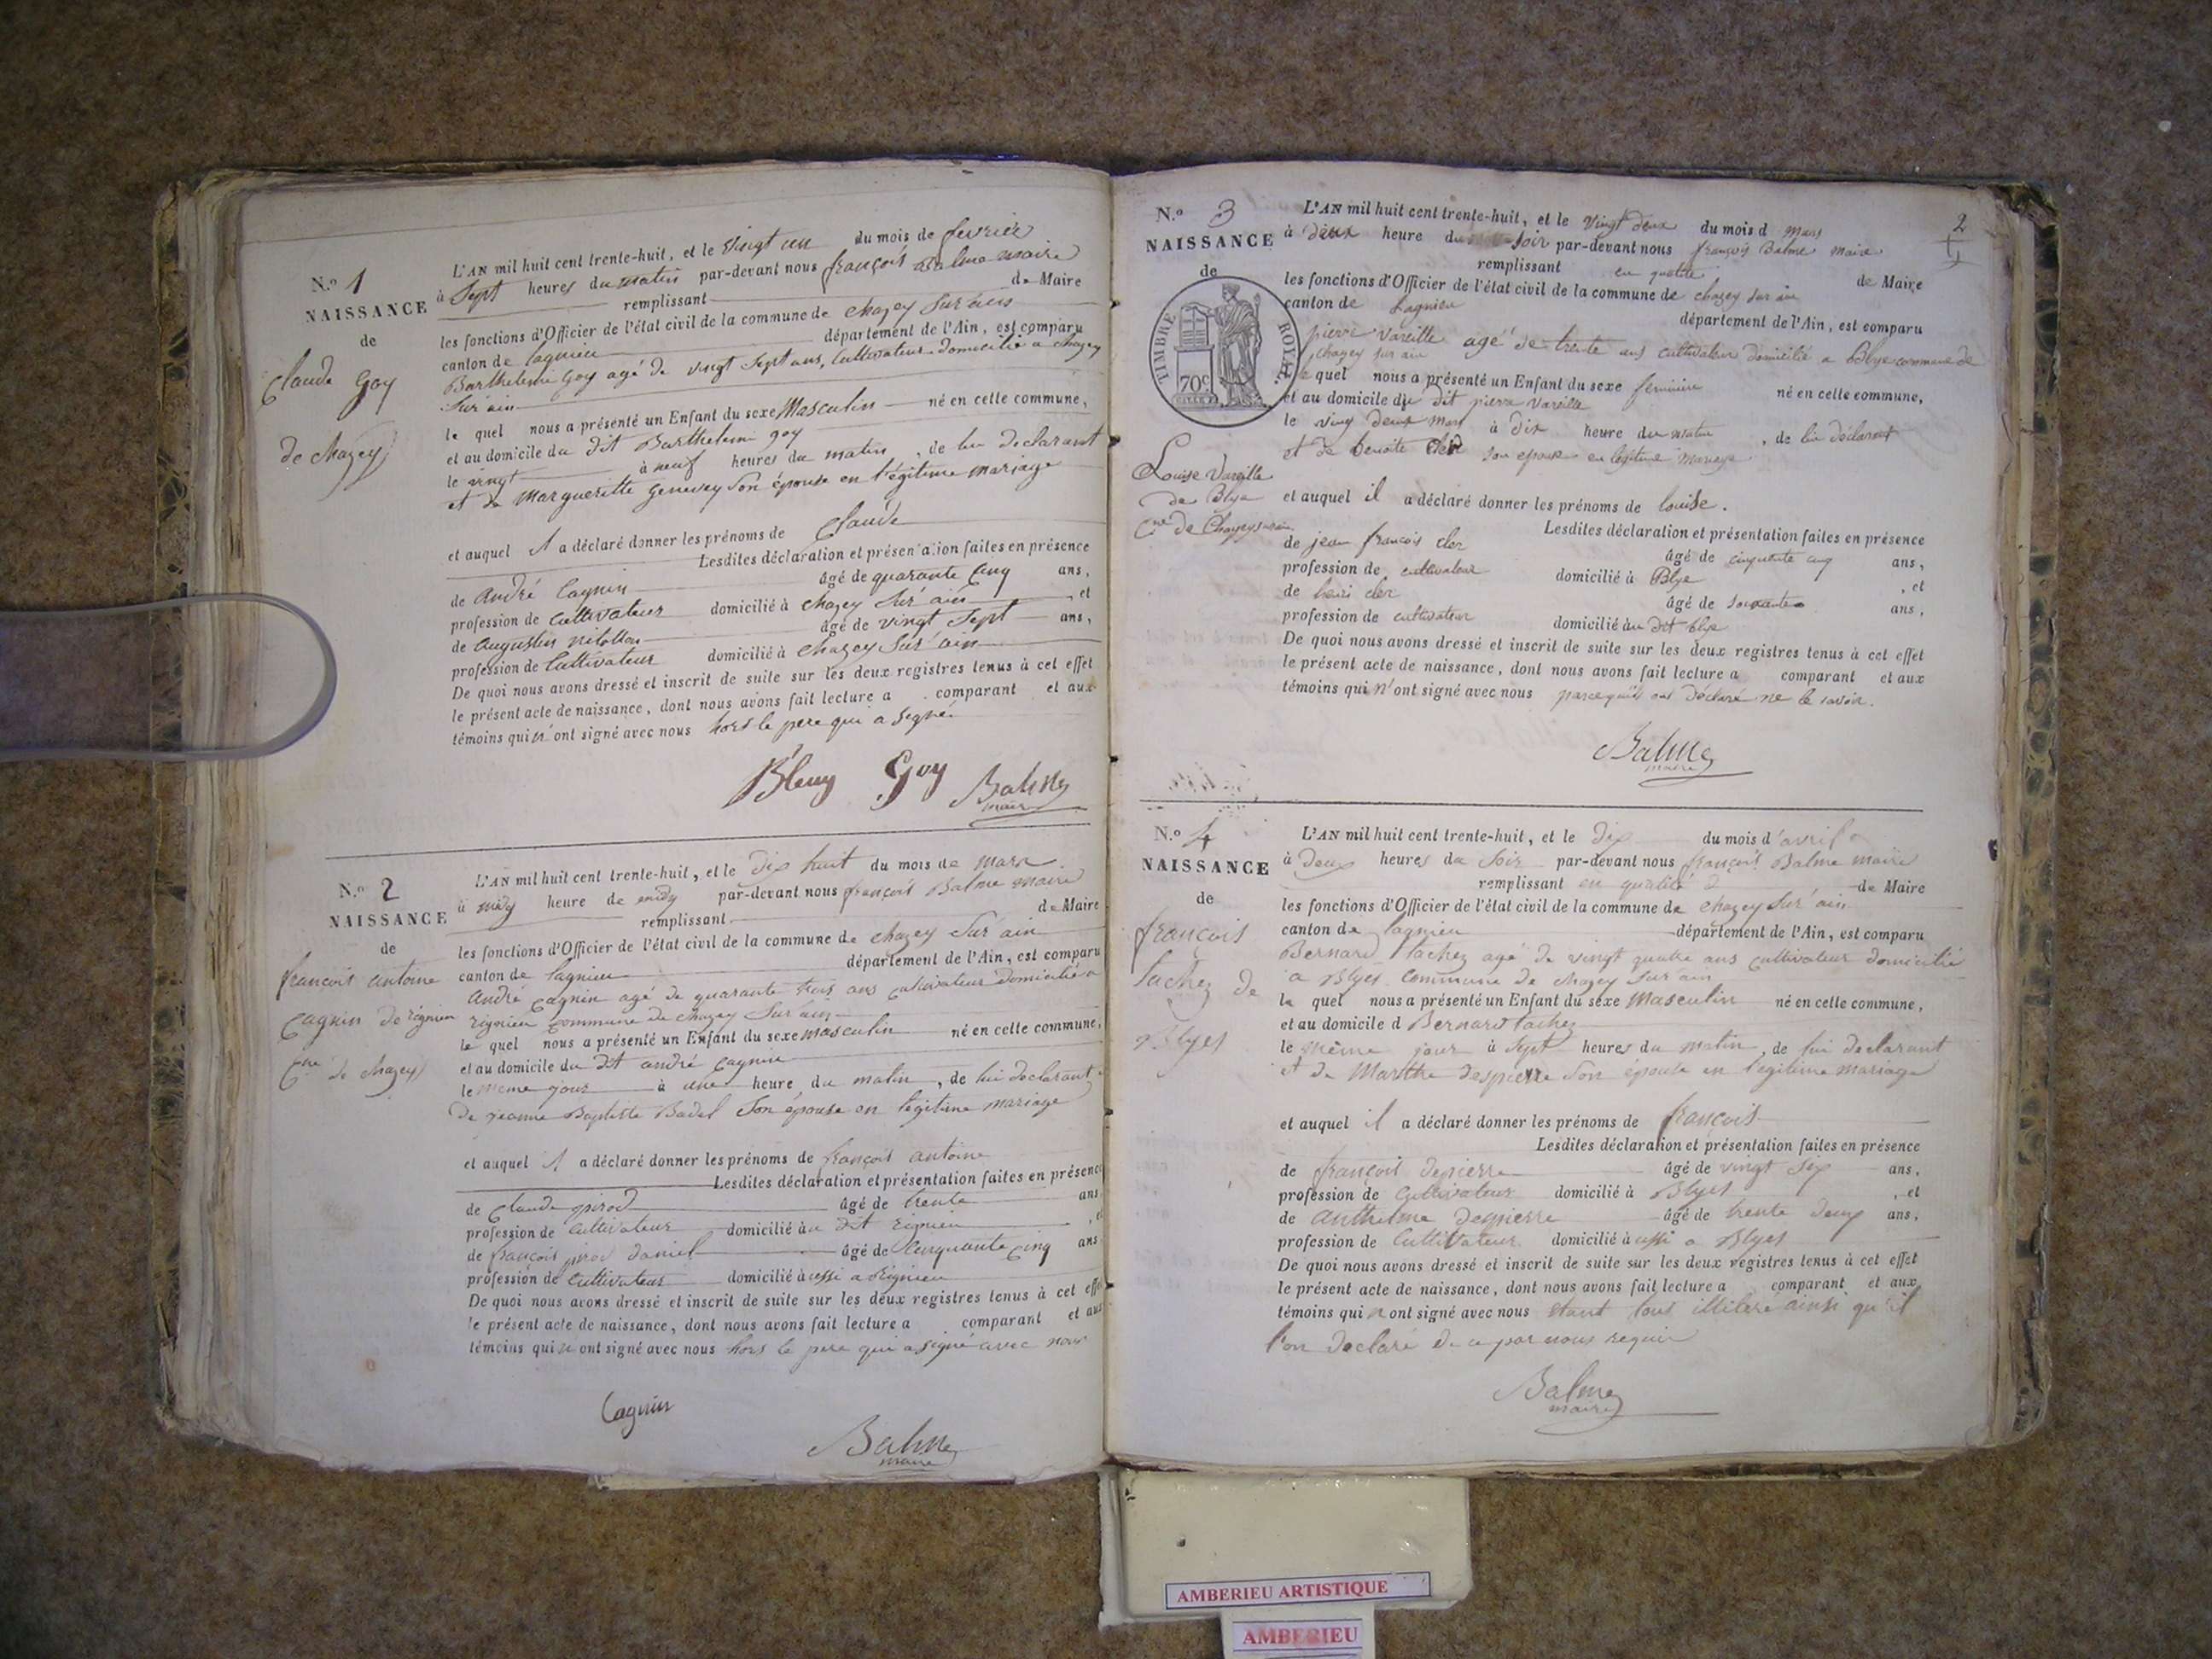 N.o 1
NAISSANCE
de
Claude Goy
de Chazey
L'AN mil huit cent trente-huit, et le vingt un du mois de fevrier
à Sept heures du matin par-devant nous françois Balme maire
remplissant de Maire
les fonctions d'Officier de l'état civil de la commune de chazey Sur ain
canton de lagnieu département de l'Ain, est comparu
Barthelemi Goy agé de vingt Sept ans, Cultivateur domicilié a chazey
Sur ain
le quel nous a présenté un Enfant du sexe Masculin né en cette commune,
et au domicile du dit Barthelemi goy
le vingt à neuf heures du matin, de lui declarant
et de Margueritte Genevey Son épouse en légitime mariage
et auquel il a déclaré donner les prénoms de Claude
Lesdites déclaration et présentation faites en présence
de André Cagnin âgé de quarante Cinq ans,
profession de Cultivateur domicilié à chazey Sur ain, et
de Augustin âgé de vingt Sept ans,
profession de Cultivateur domicilié à chazey Sur ain
De quoi nous avons dressé et inscrit de suite sur les deux registres tenus à cet effet
le présent acte de naissance, dont nous avons fait lecture a comparant et aux
témoins qui n'ont signé avec nous hors le pere qui a signé
Goy Balme
maire
N.o 2
NAISSANCE
de
francois antoine
Cagnin de rignieu
Cne de Chazey
L'AN mil huit cent trente-huit, et le dix huit du mois de mars
à midy heure de midy par-devant nous françois Balme maire
remplissant de Maire
les fonctions d'Officier de l'état civil de la commune de chazey Sur ain
canton de lagnieu département de l'Ain, est comparu
André Cagnin agé de quarante trois ans cultivateur domicilié a
rignieu commune de chazey Sur ain
le quel nous a présenté un Enfant du sexe masculin né en cette commune,
et au domicile du dit andré Cagnin
le meme jour à une heure du matin, de lui declarant
de jeanne Baptiste Badel Son épouse en legitime mariage
et auquel il a déclaré donner les prénoms de françois antoine
Lesdites déclaration et présentation faites en présence
de Claude girod âgé de trente ans
profession de Cultivateur domicilié au dit rignieu
de françois daniel âgé de Cinquante Cinq ans
profession de Cultivateur domicilié aussi a Rignieu
De quoi nous avons dressé et inscrit de suite sur les deux registres tenus à cet effet
le présent acte de naissance, dont nous avons fait lecture a comparant et aux
témoins qui n ont signé avec nous hors le pere qui a signé avec nous
Cagnin
Balme
maire
2
N.o 3
NAISSANCE
de
TIMBRE ROYAL.
70c
Louise Vareille
de Blye
Cne de Chazey sur ain
L'AN mil huit cent trente-huit, et le vingt deux du mois d mars
à deux heure du soir par-devant nous françois Balme maire
remplissant en qualité de Maire
les fonctions d'Officier de l'état civil de la commune de chazey sur ain
canton de Lagnieu département de l'Ain, est comparu
pierre Vareille agé de trente ans cultivateur domicilié a Blye commune de
chazey sur ain
le quel nous a présenté un Enfant du sexe feminin né en cette commune,
et au domicile du dit pierre Vareille
le vingt deux mars à dix heure du matin, de lui declarant
et de benoite Cler son epouse en legitime mariage
et auquel il a déclaré donner les prénoms de louise.
Lesdites déclaration et présentation faites en présence
de jean françois cler âgé de cinquante cinq ans,
profession de cultivateur domicilié à Blye, et
de henri cler âgé de soixante ans,
profession de cultivateur domicilié au dit blye
De quoi nous avons dressé et inscrit de suite sur les deux registres tenus à cet effet
le présent acte de naissance, dont nous avons fait lecture a comparant et aux
témoins qui n'ont signé avec nous parcequils ont déclaré ne le savoir.
Balme
maire
N.o 4
NAISSANCE
de
françois
tachez de
Blyes
L'AN mil huit cent trente-huit, et le dix du mois d'avril
à deux heures du soir par-devant nous françois Balme maire
remplissant en qualité de Maire
les fonctions d'Officier de l'état civil de la commune de chazey Sur ain
canton de lagnieu département de l'Ain, est comparu
Bernard tachez agé de vingt quatre ans cultivateur domicilié
a Blyes commune de chazey Sur ain
le quel nous a présenté un Enfant du sexe Masculin né en cette commune,
et au domicile d Bernard tachez
le même jour à Sept heures du matin, de lui declarant
et de Marthe despierre Son épouse en legitime mariage
et auquel il a déclaré donner les prénoms de françois
Lesdites déclaration et présentation faites en présence
de françois depierre âgé de vingt Six ans,
profession de Cultivateur domicilié à Blyes, et
de Anthelme depierre âgé de trente deux ans,
profession de Cultivateur domicilié aussi a Blyes
De quoi nous avons dressé et inscrit de suite sur les deux registres tenus à cet effet
le présent acte de naissance, dont nous avons fait lecture a comparant et aux
témoins qui n ont signé avec nous étant tous illiteré ainsi qu'il
l'on declaré de ce par nous requis
Balme
maire
AMBERIEU ARTISTIQUE
AMBERIEU